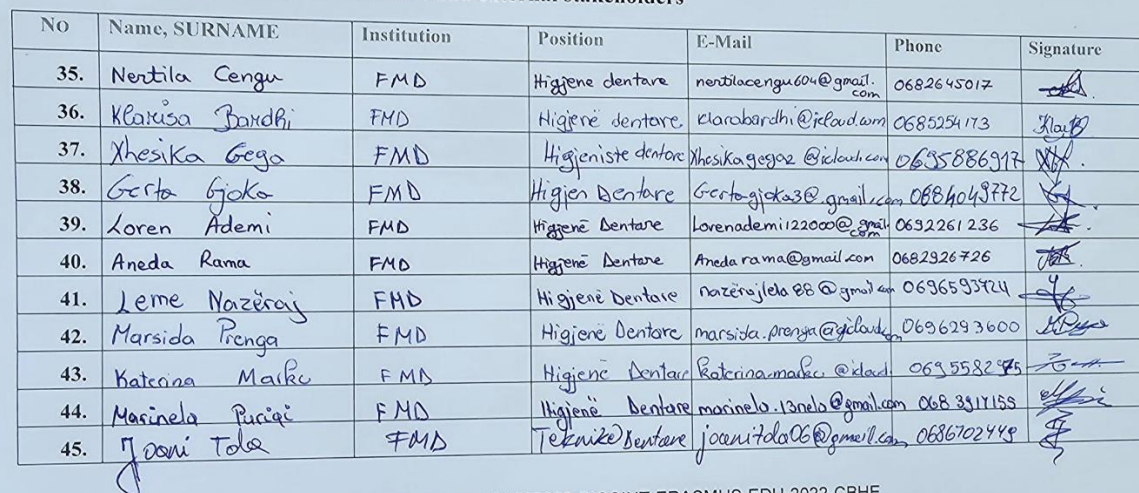 No Name, SURNAME Institution Position E-Mail Phone Signature
35. Nertila Cengu FMD Higjene dentare nertilacengu604@gmail.com 0682645017
36. Klarisa Bardhi FMD Higjenë dentare klarabardhi@icloud.com 0685254173
37. Xhesika Gega FMD Higjeniste dentare Xhesikagega2@icloud.com 0695886917
38. Gerta Gjoka FMD Higjen Dentare Gertagjoka3@.gmail.com 0684049772
39. Loren Ademi FMD Higjenë Dentare Lorenademi122000@gmail.com 0692261236
40. Aneda Rama FMD Higjenë Dentare Anedarama@gmail.com 0682926726
41. Leme Nazëraj FMD Higjenë Dentare nazërajlela88@gmail.com 0696593724
42. Marsida Prenga FMD Higjenë Dentare 0696293600
43. Katerina FMD Higjenë Dentare
44. Marinela FMD Higjenë Dentare marinela.13nela@gmail.com 068 3917155
45. Joani Tola FMD Teknikë Dentare joanitola06@gmail.com 0686702449